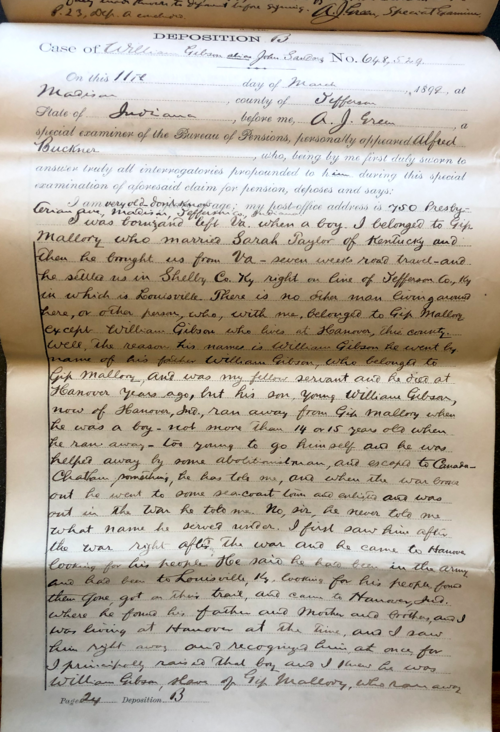 before signing,
P. 23, Dep. A
A. J. Green, Special Examiner
DEPOSITION B
Case of William Gibson alias John Sanders No. 648,529
On this 11th day of March, 1899, at
Madison, county of Jefferson
State of Indiana, before me, A. J. Green, a
special examiner of the Bureau of Pensions, personally appeared Alfred
Buckner, who, being by me first duly sworn to
answer truly all interrogatories propounded to him during this special
examination of aforesaid claim for pension, deposes and says:
I am very old - Don't know age; my post-office address is 750 Presby-
terian ave, Madison, Jefferson Co, Ind
I was born and left Va. when a boy. I belonged to Gip
Mallory who married Sarah Taylor of Kentucky and
then he brought us from Va - seven weeks road travel - and
he settled us in Shelby Co. Ky right on line of Jefferson Co., Ky
in which is Louisville. There is no other man living around
here, or other person, who, with me, belonged to Gip Mallory
except William Gibson who lives at Hanover, this county.
Well, the reason his name is William Gibson he went by
name of his father William Gibson, who belonged to
Gip Mallory, and was my fellow servant and he died at
Hanover years ago, but his son, young William Gibson,
now of Hanover, Ind., ran away from Gip Mallory when
he was a boy - not more than 14 or 15 years old when
he ran away - too young to go himself and he was
helped away by some abolitionist man, and escaped to Canada -
Chatham something, he has told me, and when the war broke
out he went to some seacoast town and enlisted and was
out in the war he told me. No, sir, he never told me
what name he served under. I first saw him after
the war right after the war and he came to Hanover
looking for his people. He said he had been in the army
and had been to Louisville, Ky. looking for his people, found
them gone, got on their trail, and came to Hanover, Ind.
where he found his father and mother and brothers, and I
was living at Hanover at the time, and I saw
him right away and recognized him at once for
I principally raised that boy and I knew he was
William Gibson, slave of Gip Mallory, who ran away
Page 24 Deposition B